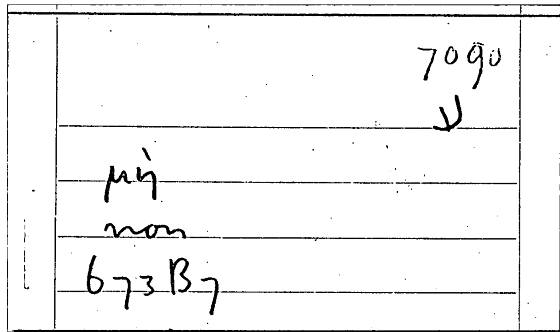 7090
μὴ
non
673B7